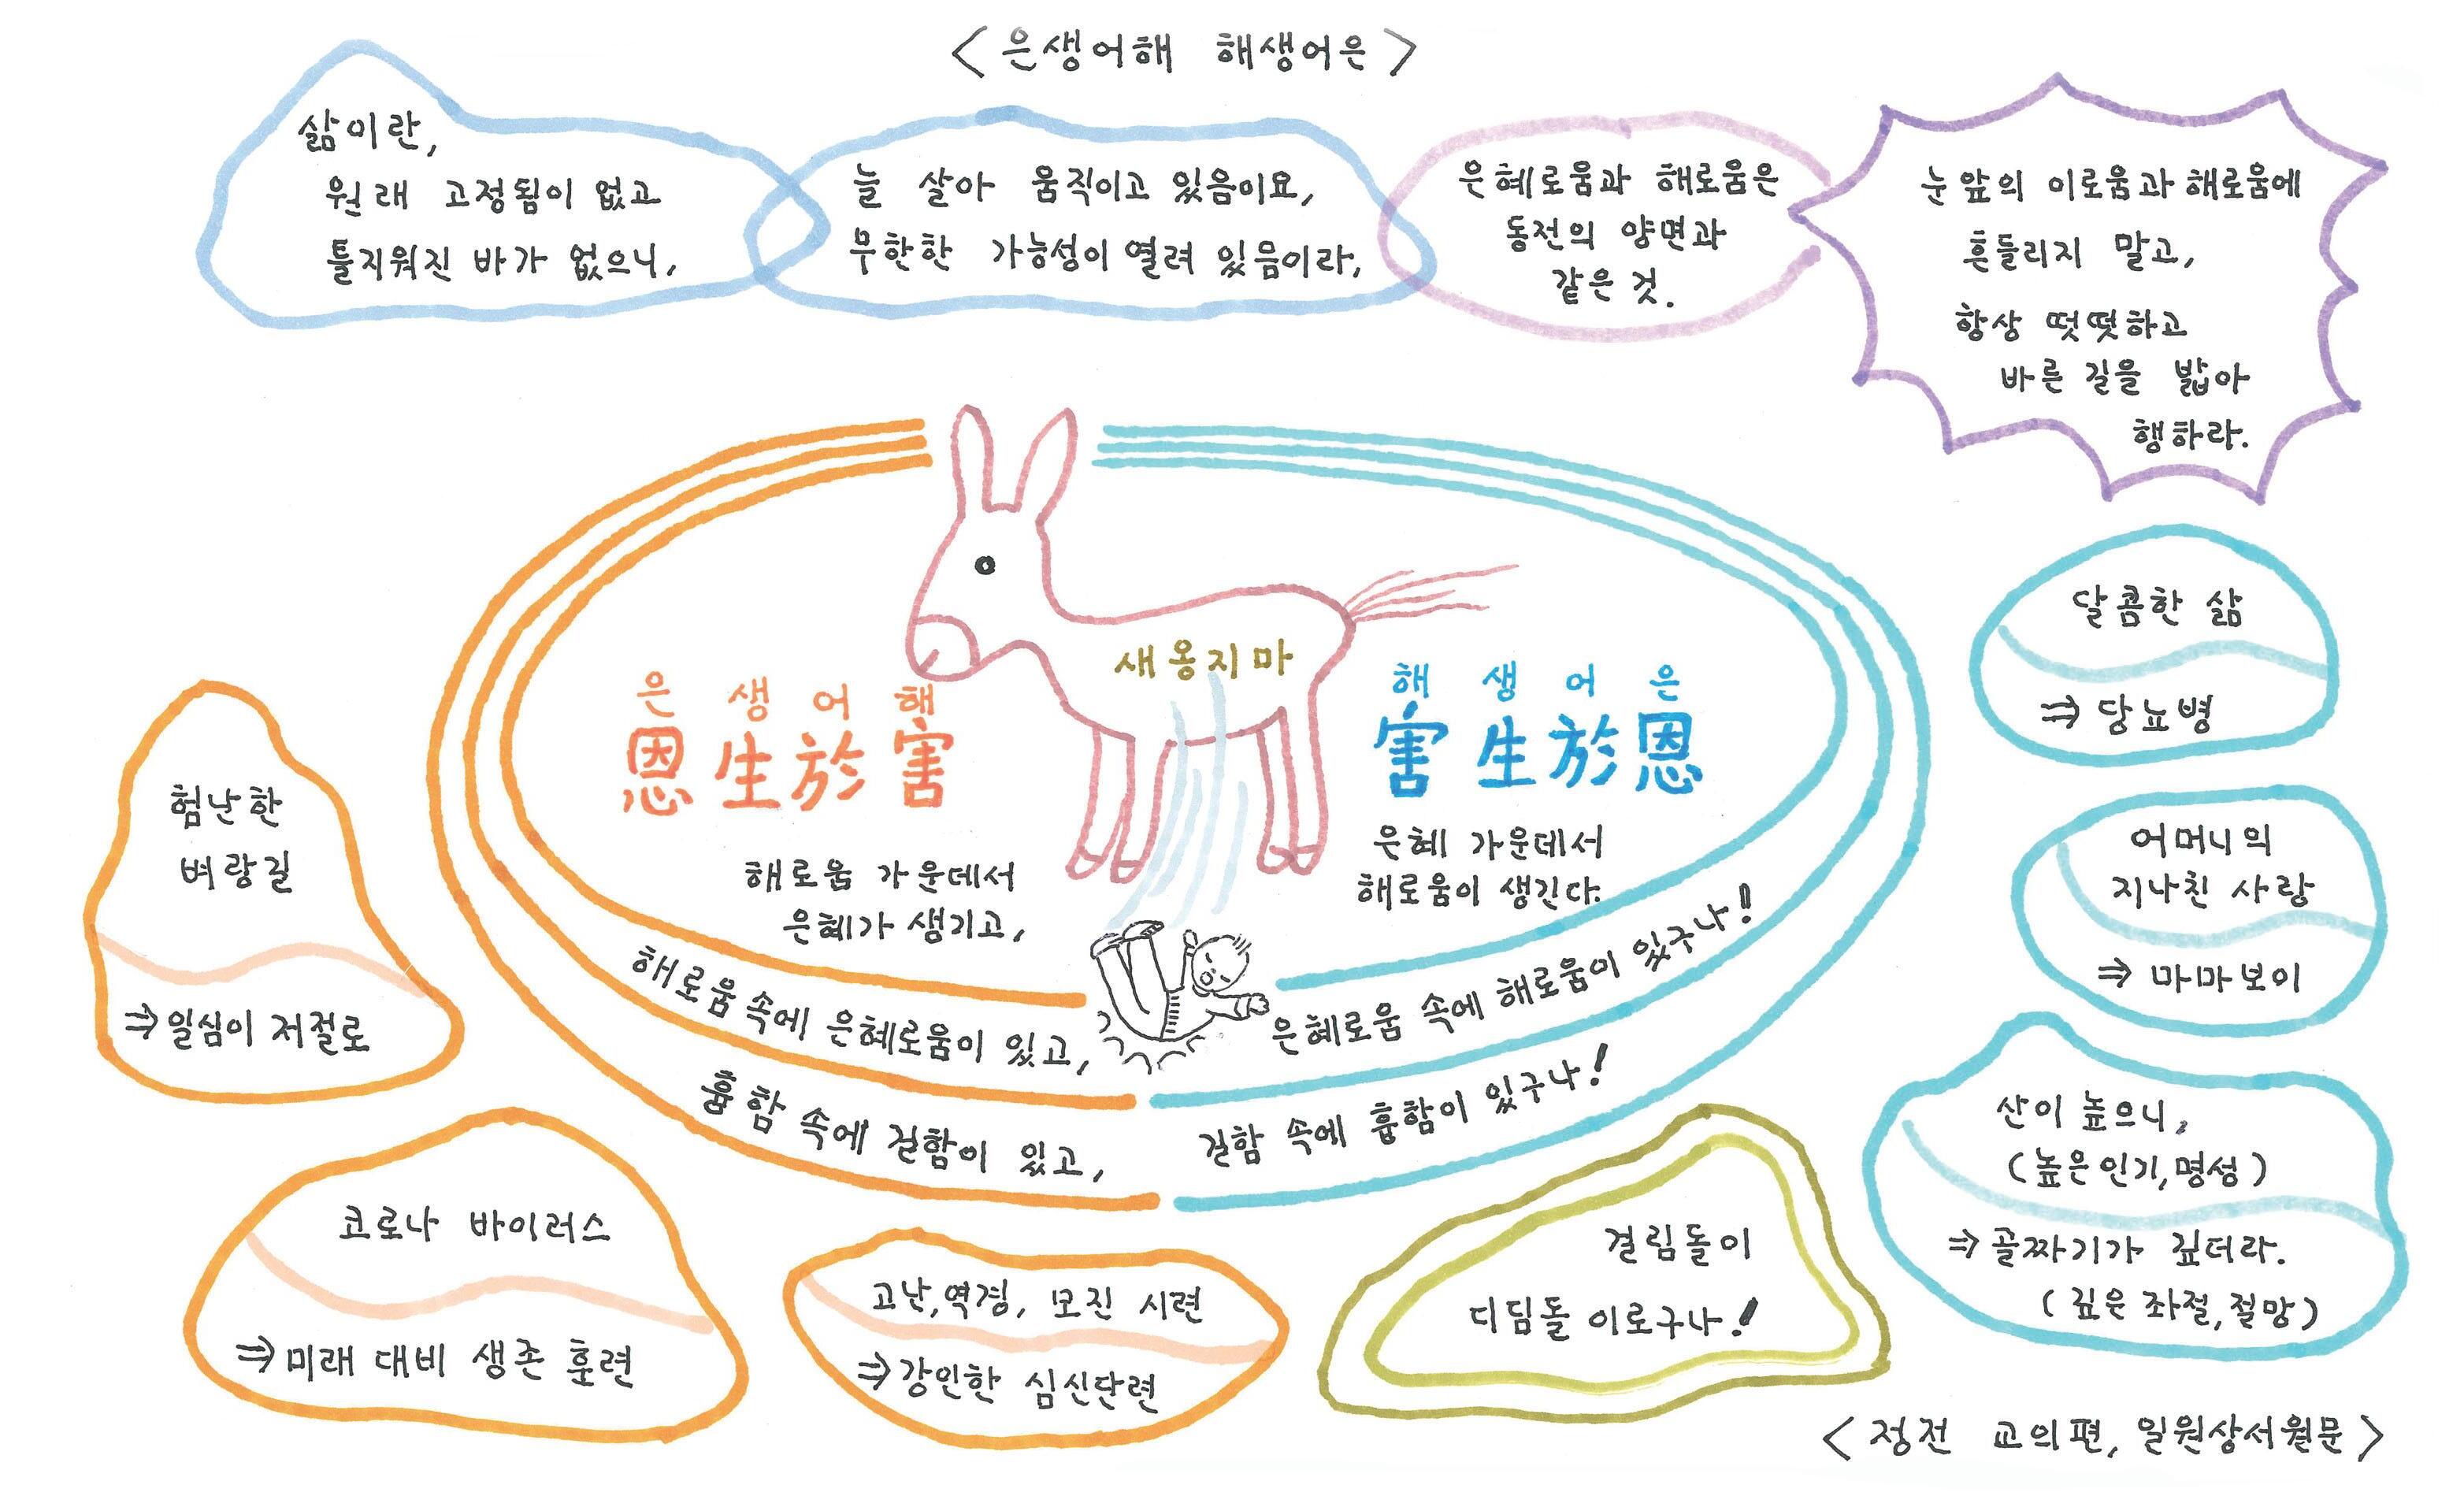 <은생어해 해생어은>
삶이란,
원래 고정됨이 없고
틀지워진 바가 없으니,
늘 살아 움직이고 있음이요,
무한한 가능성이 열려 있음이라,
은혜로움과 해로움은
동전의 양면과
같은 것.
눈앞의 이로움과 해로움에
흔들리지 말고,
항상 떳떳하고
바른 길을 밟아
행하라.
새옹지마
은 생 어 해
恩生於害
해로움 가운데서
은혜가 생기고,
해 생 어 은
害生於恩
은혜 가운데서
해로움이 생긴다.
해로움 속에 은혜로움이 있고,
은혜로움 속에 해로움이 있구나!
흉함 속에 길함이 있고,
길함 속에 흉함이 있구나!
험난한
벼랑길
⇒일심이 저절로
코로나 바이러스
⇒미래 대비 생존 훈련
고난,역경, 모진 시련
⇒강인한 심신단련
걸림돌이
디딤돌 이로구나!
달콤한 삶
⇒ 당뇨병
어머니의
지나친 사랑
⇒ 마마보이
산이 높으니,
(높은인기,명성)
⇒골짜기가 깊더라.
(깊은 좌절,절망)
<정전 교의편, 일원상서원문>